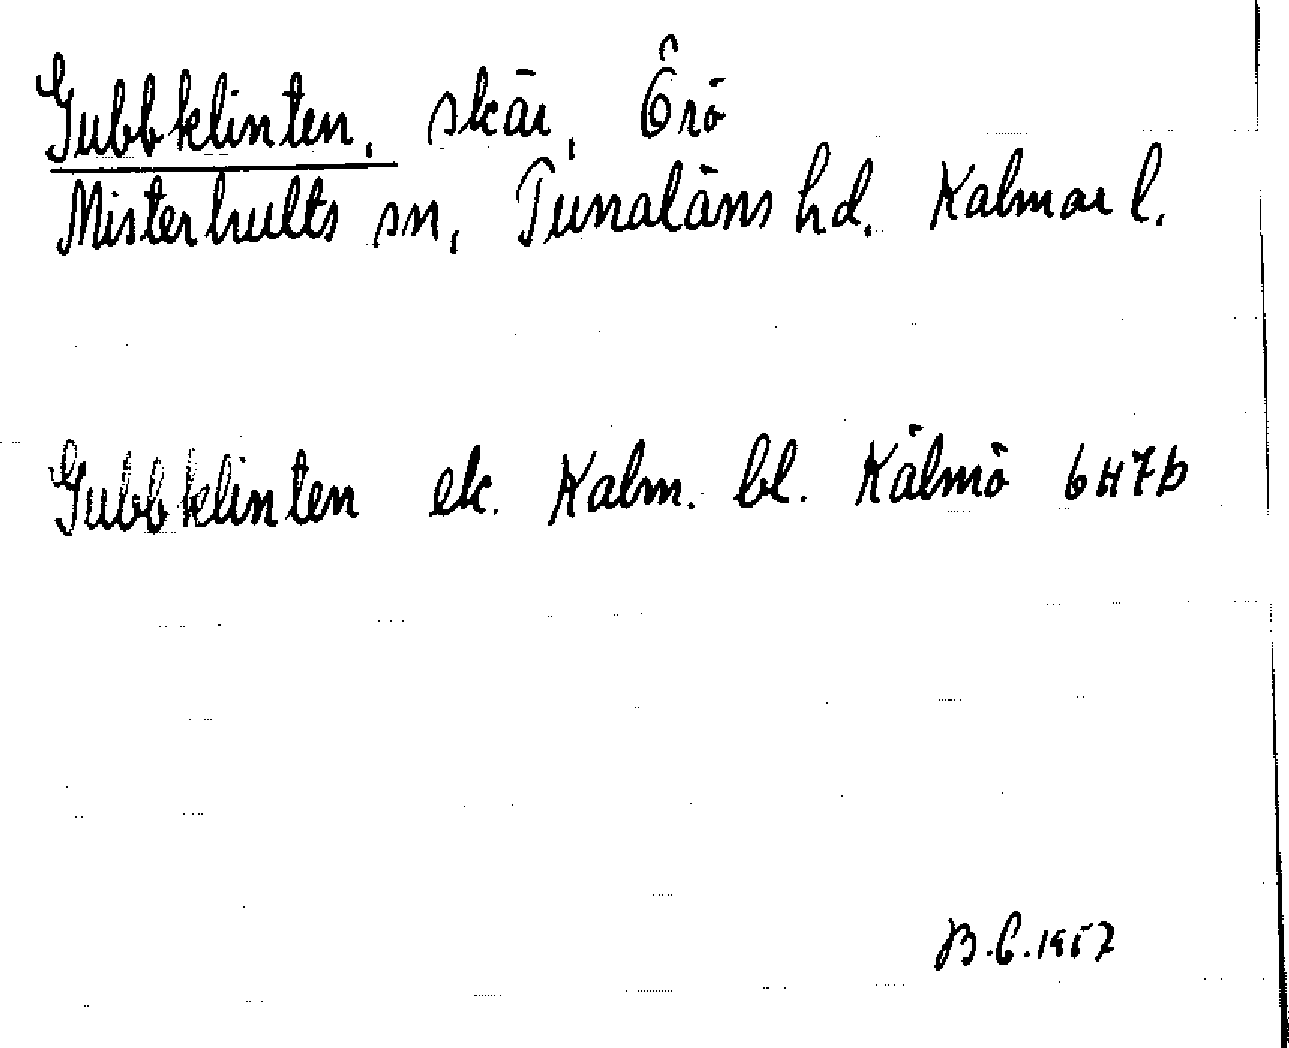 Gubbklinten, skär, Örö
Misterhults sn, Tunaläns hd. Kalmar l.
Gubbklinten ek. Kalm. bl. Kålmö 6H7b
B.C. 1957